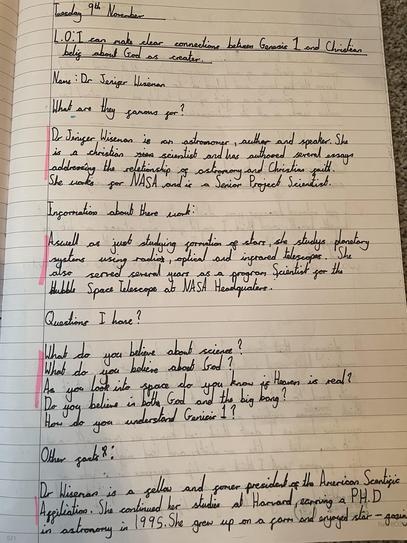 Tuesday 9th November
L.O: I can make clear connections between Genesis 1 and Christian
belig about God as creater.
Name: Dr Jeniger Wiseman
What are they famous for?
Dr Jeniger Wiseman is an astronomer, author and speaker. She
is a christian scientist and has authored several essays
addressing the relationship of astronomy and Christian faith.
She works for NASA and is a Senior Project Scientist.
Information about there work:
Aswell as just studying formation of stars, she studys planetary
systems using radios, optical and infrared telescopes. She
also served several years as a program Scientist for the
Hubble Space Telescope at NASA Headquaters.
Questions I have?
What do you believe about science?
What do you believe about God?
As you look into space do you know if Heaven is real?
Do you believe in both God and the big bang?
How do you understand Genisis 1?
Other facts:
Dr Wiseman is a fellow and former president of the American Scentific
Affiliation. She continued her studies at Harvard, earning a PH.D
in astronomy in 1995. She grew up on a farm and enjoyed star-gazing